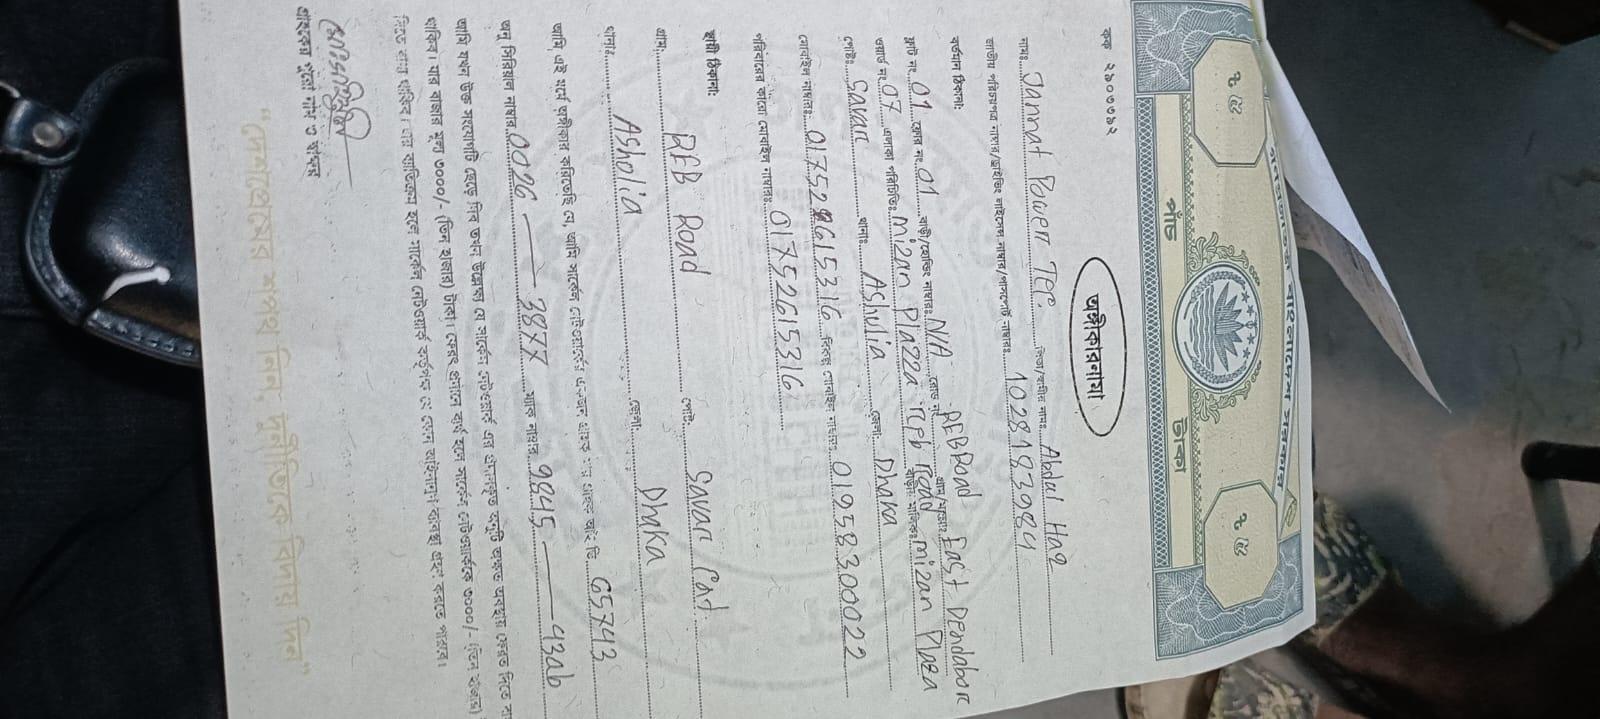 গণপ্রজাতন্ত্রী বাংলাদেশ সরকার
৫৲ ৫৲
পাঁচ টাকা
কক ২৯০৩৬৯২
অঙ্গীকারনামা
নাম: Jannat Power Tec. পিতা/স্বামীর নাম: Abdul Haq
জাতীয় পরিচয়পত্র নাম্বার/ড্রাইভিং লাইসেন্স নাম্বার/পাসপোর্ট নাম্বার: 1028183984
বর্তমান ঠিকানা:
ফ্লাট নং 01 ফ্লোর নং 01 বাড়ী/হোল্ডিং নাম্বার: N/A রোড নং REB Road গ্রাম/মহল্লা: East Dendabor
ওয়ার্ড নং 07 এলাকা পরিচিতি: Mizan Plazza Repb Road বাড়ির মালিক: Mizan Plaza
পোষ্ট: Savar থানা: Ashulia জেলা: Dhaka
মোবাইল নাম্বার: 01752615316 বিকল্প মোবাইল নাম্বার: 01958300022
পরিবারের কারো মোবাইল নাম্বার: 01752615316
স্থায়ী ঠিকানা:
গ্রাম: REB Road পোষ্ট: Savar Cant.
থানা: Asholia জেলা: Dhaka
আমি এই মর্মে অঙ্গীকার করিতেছি যে, আমি সার্কেল নেটওয়ার্কের একজন গ্রাহক যার গ্রাহক আই ডি 65743
অনু সিরিয়াল নাম্বার 0026 — 3877 ম্যাক নাম্বার 9845 — 43ab
আমি যখন উক্ত সংযোগটি ছেড়ে দিব তখন উল্লেখ্য যে সার্কেল নেটওয়ার্ক এর প্রদানকৃত অনুটি অক্ষত অবস্থায় ফেরত দিতে বা
থাকিব। যার বাজার মূল্য ৩০০০/- (তিন হাজার) টাকা। ফেরৎ প্রদানে ব্যর্থ হলে সার্কেল নেটওয়ার্ককে ৩০০০/- (তিন হাজার)
দিতে বাধ্য থাকিব। এর ব্যতিক্রম হলে সার্কেল নেটওয়ার্ক কর্তৃপক্ষ যে কোন আইনানুগ ব্যবস্থা গ্রহণ করতে পারবে।
গ্রাহকের পুরো নাম ও স্বাক্ষর
"দেশপ্রেমের শপথ নিন, দুর্নীতিকে বিদায় দিন"